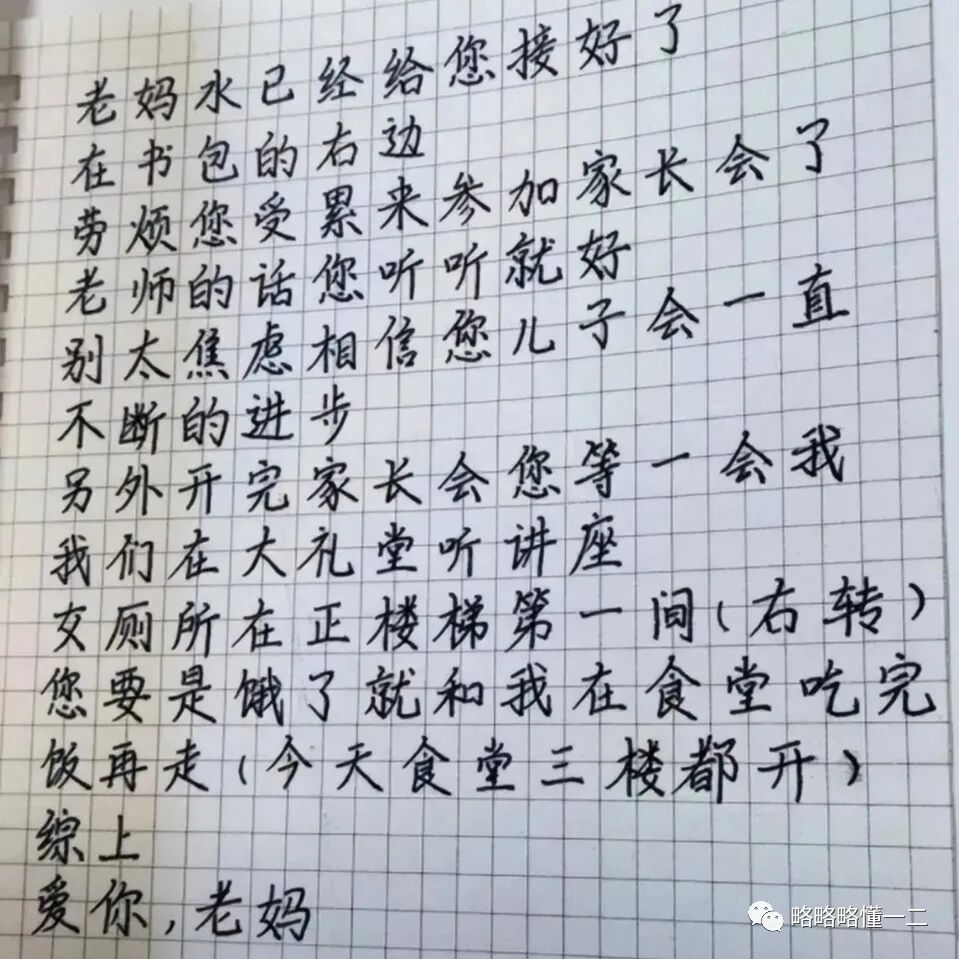 老妈水已经给您接好了
在书包的右边
劳烦您受累来参加家长会了
老师的话您听听就好
别太焦虑相信您儿子会一直
不断的进步
另外开完家长会您等一会我
我们在大礼堂听讲座
女厕所在正楼梯第一间(右转)
您要是饿了就和我在食堂吃完
饭再走(今天食堂三楼都开)
综上
爱你,老妈
略略略懂一二